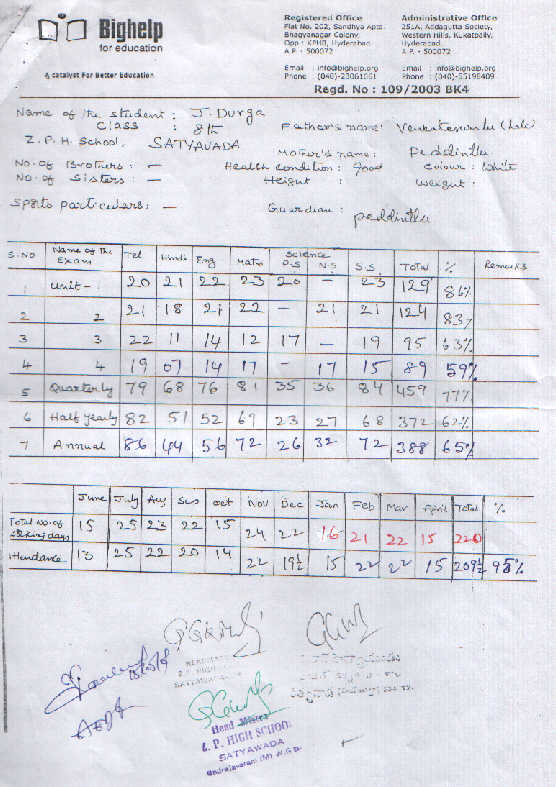 Bighelp
for education
A Catalyst For Better Education
Registered Office
Flat No. 202, Sandhya Apts.
Bhagyanagar Colony,
Opp : KPHB, Hyderabad
A.P. - 500072
Email : info@bighelp.org
Phone : (040)-23061661
Administrative Office
251A, Addagutta Society,
Western Hills, Kukatpally,
Hyderabad,
A.P. - 500072
Email : info@bighelp.org
Phone : (040)-65198409
Regd. No : 109/2003 BK4
Name of the student : J. Durga
Class : 8th
Father's name: Venkateswarlu (late)
Z.P.H. School, SATYAVADA
Mother's name : Peddintlu
No. of Brothers : —
Health condition : good
colour : White
No. of Sisters : —
Height :
weight :
Sports particulars : —
Guardian : peddintlu
S.NO Name of the Exam Tel Hindi Eng Maths Science P.S N.S S.S TOTAL % Remarks
1 Unit - 1 20 21 22 23 20 — 23 129 86%
2 2 21 18 21 22 — 21 21 124 83%
3 3 22 11 14 12 17 — 19 95 63%
4 4 19 07 14 17 — 17 15 89 59%
5 Quarterly 79 68 76 81 35 36 84 459 77%
6 Half yearly 82 51 52 69 23 27 68 372 62%
7 Annual 86 44 56 72 26 32 72 388 65%
June July Aug Sep oct Nov Dec Jan Feb Mar April Total %
Total No. of working days 15 25 23 22 15 24 22 16 21 22 15 220
Attendance 13 25 22 20 14 22 19½ 15 22 22 15 209½ 95%
Head Master
Z. P. HIGH SCHOOL
SATYAWADA